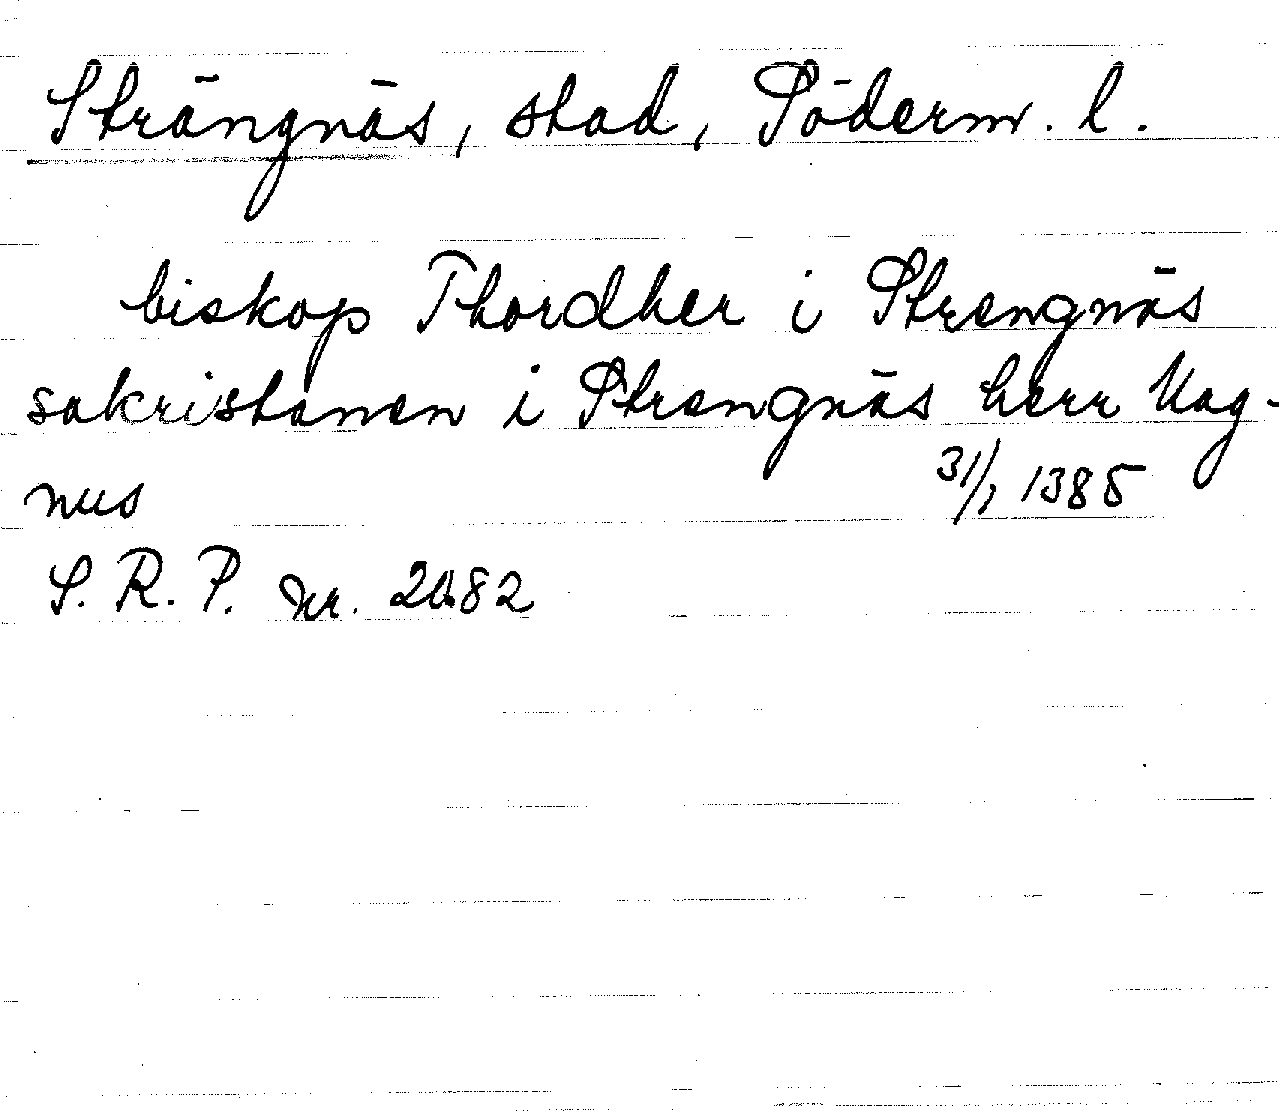 Strängnäs, stad, Söderm. l.
biskop Thordher i Strengnäs
sakristanen i Strengnäs herr Mag-
nus 31/1 1385
S. R. P. nr. 2082